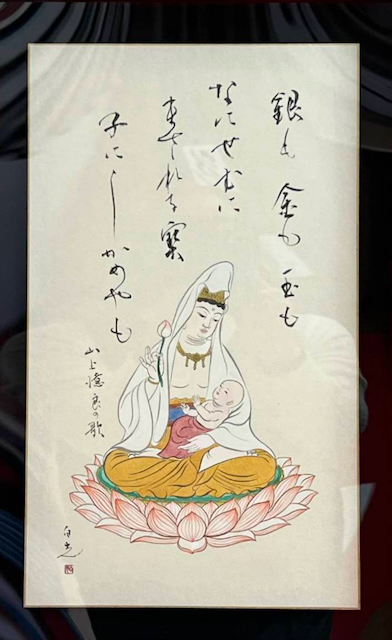 銀も 金も 玉も
なにせむに
まされる寳
子にしかめやも
山上憶良の歌